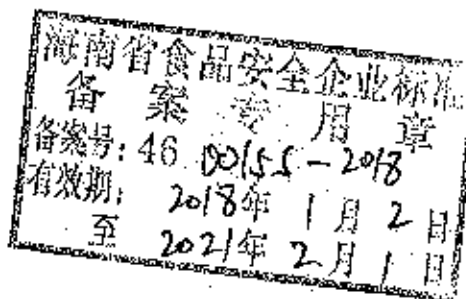 海南省食品安全企业标准
备案专用章
备案号：46 00155-2018
有效期：2018年1月2日
至2021年2月1日